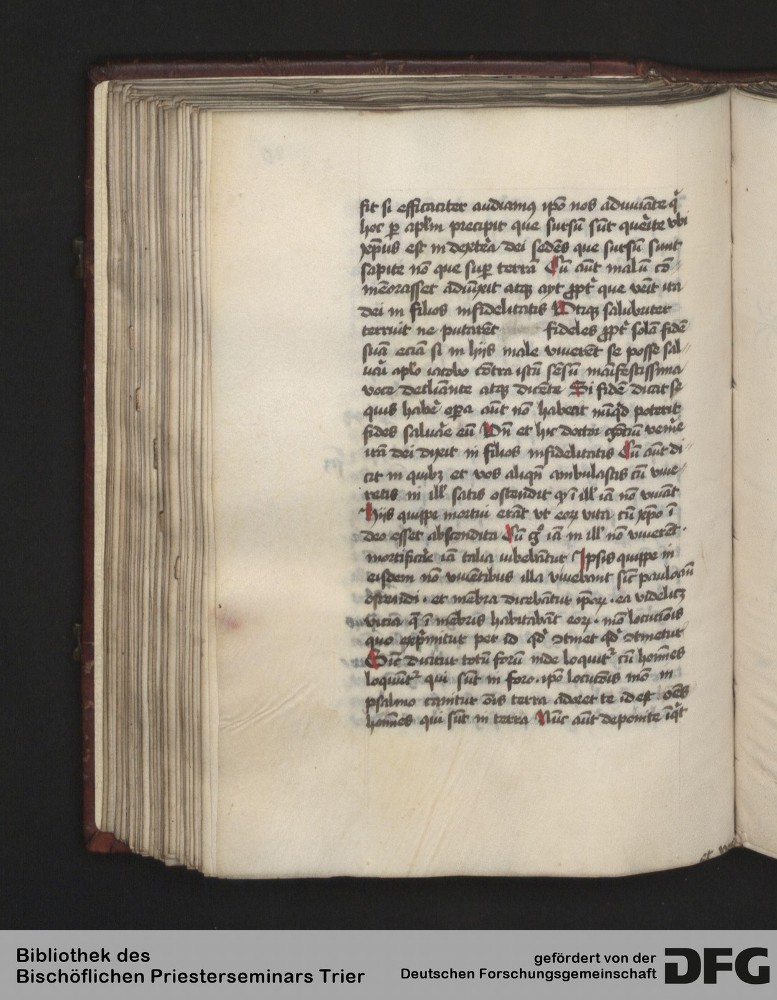 sit si efficaciter audiamꝰ ip̄o nos adiuuāte q̄
hoc ꝑ apl̄m precipit que sursū sūt querite vbi
xp̄us est in dextera dei sedēs que sursū sunt
sapite nō que suꝑ terrā Cū aūt malū cō
memorasset adiūxit atqꝫ ayt ꝓpt̄ que venit ira
dei in filios infidelitatis Vtiqꝫ salubriter
terruit ne putarēt fideles ꝓpt̄ solā fidē
suā eciā si in hijs male viuerēt se posse sal
uari aplō iacobo cōtra istū sēsū manifestissima
voce declamāte atqꝫ dicēte Si fidē dicat se
quis habē opera aūt nō habeat nūqd poterit
fides saluare eū Vn̄ et hic doctor gētiū venire
irā dei dixit in filios infidelitatis Cū aūt di
cit in quibꝫ et vos aliqn̄ ambulastis cū viue
retis in ill' satis ostendit qꝫ ī ill' iā nō viuāt
Hijs quippe mortui erāt vt eoꝝ vita cū xp̄o ī
deo esset abscondita Cū gͦ iā in ill' nō viuerēt
mortificare iā talia iubebātur Ipsis quippe in
eisdem nō viuentibus illa viuebant sic̄ pauloan̄
ostendi . et mēbra dicebātur ip̄oꝝ . ea videlicꝫ
vicia q̄ ī mēbris habitabāt eoꝝ . mō locucōis
quo exp̄mitur per id qd̄ ɔtinet qd̄ ɔtinetur
Sic̄ dicitur totū forū inde loquit̄ cū homīes
loquūt̄ qui sūt in foro . ip̄o locucōis mō in
psalmo cantitur ōis terra adoret te id est oēs
homīes qui sūt in terra Nūc aūt deponite īqt̄
Bibliothek des
Bischöflichen Priesterseminars Trier
gefördert von der
Deutschen Forschungsgemeinschaft
DFG